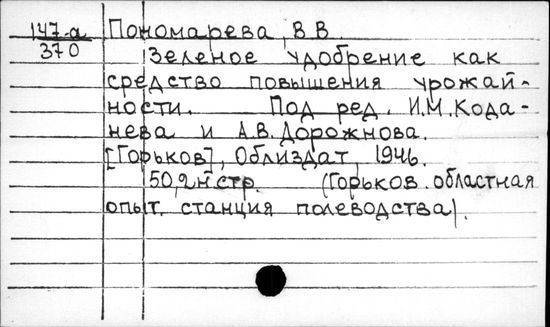 147-а Пономарева, В.В.
370
Зеленое удобрение как
средство повышения урожай-
ности. Под ред. И.М.Кода-
нева и А.В.Дорожнова.
[Горьков], Облиздат, 1946.
50,2н стр. (Горьков. областная
опыт. станция полеводства).